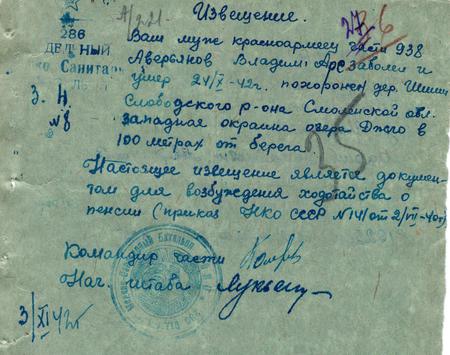 Извещение.
286
Ваш муж красноармеец части 938
Аверьянов Владим. заболел и
умер 24/X-42г. похоронен дер.
Слободского р-она Смоленской обл.
западная окраина озера в
100 метрах от берега.
Настоящее извещение является докумен-
том для возбуждения ходотайства о
пенсии (приказ НКО СССР № от
Командир части
Нач. штаба
3/XI 42г
3. Н
№8
25